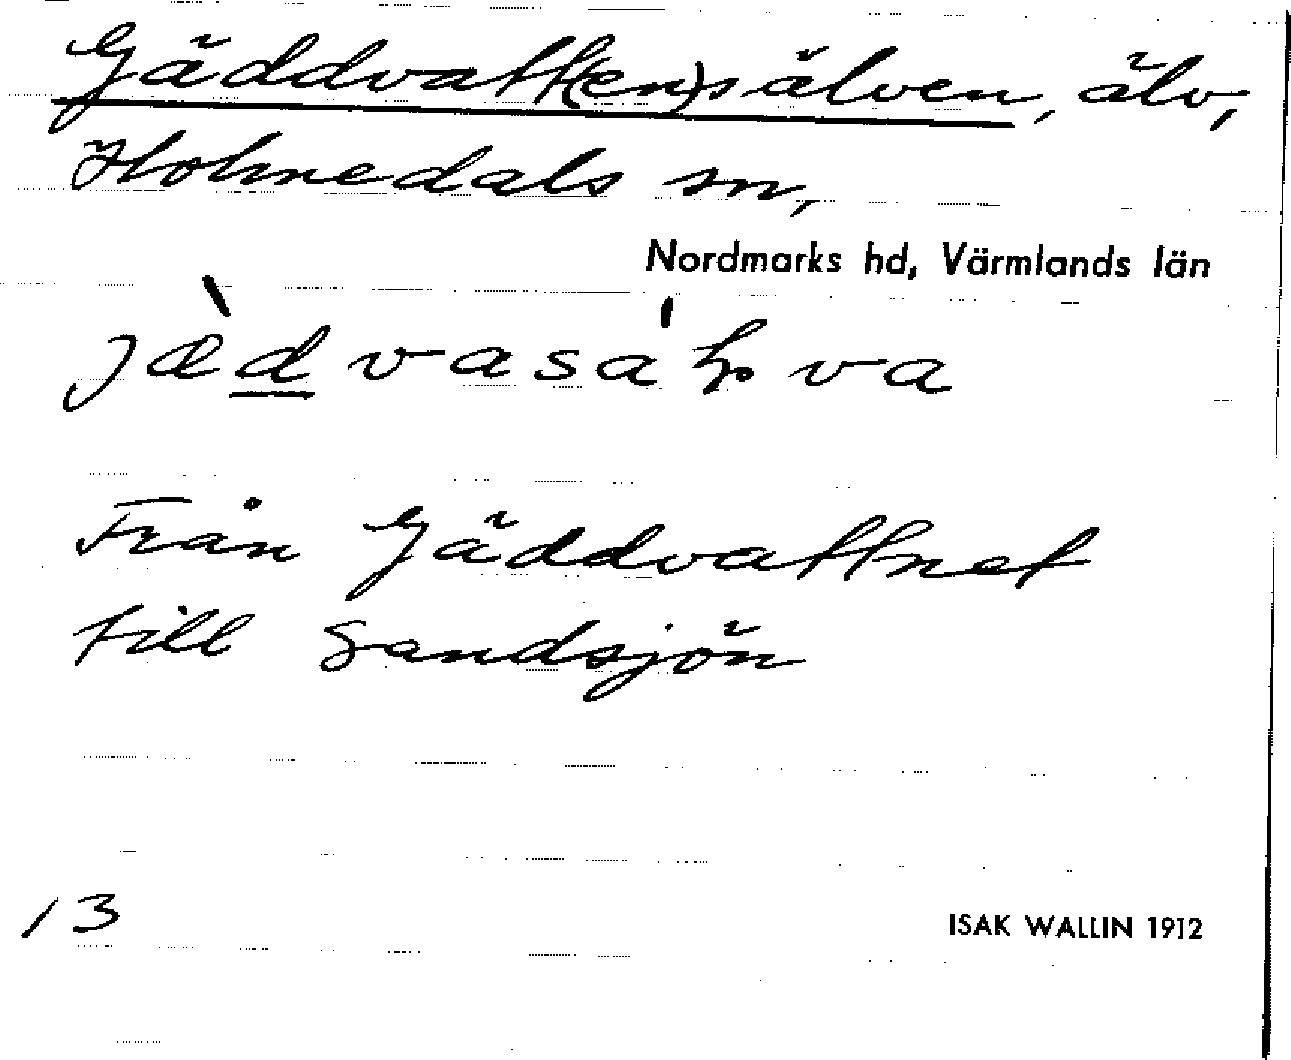 Gäddvatt(en)sälven, älv,
Holmedals sn,
Nordmarks hd, Värmlands län
jæ̀dvasáḷva
Från Gäddvattnet
till Sandsjön
13
ISAK WALLIN 1912